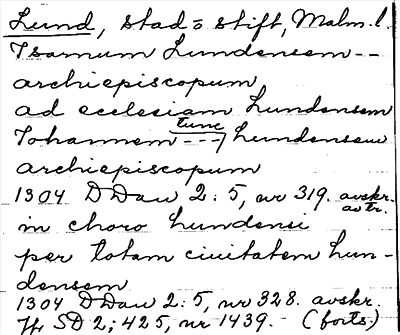 Lund, stad o stift, Malm. l.
Isarnum Lundensem --
archiepiscopum
ad ecclesiam Lundensem
Iohannem --- tunc Lundensem
archiepiscopum
1304 DDan 2:5, nr 319. avskr.
av tr.
in choro Lundensi
per totam ciuitatem Lun-
densem
1304 DDan 2:5, nr 328. avskr.
Tr. SD 2; 425, nr 1439. - (forts)